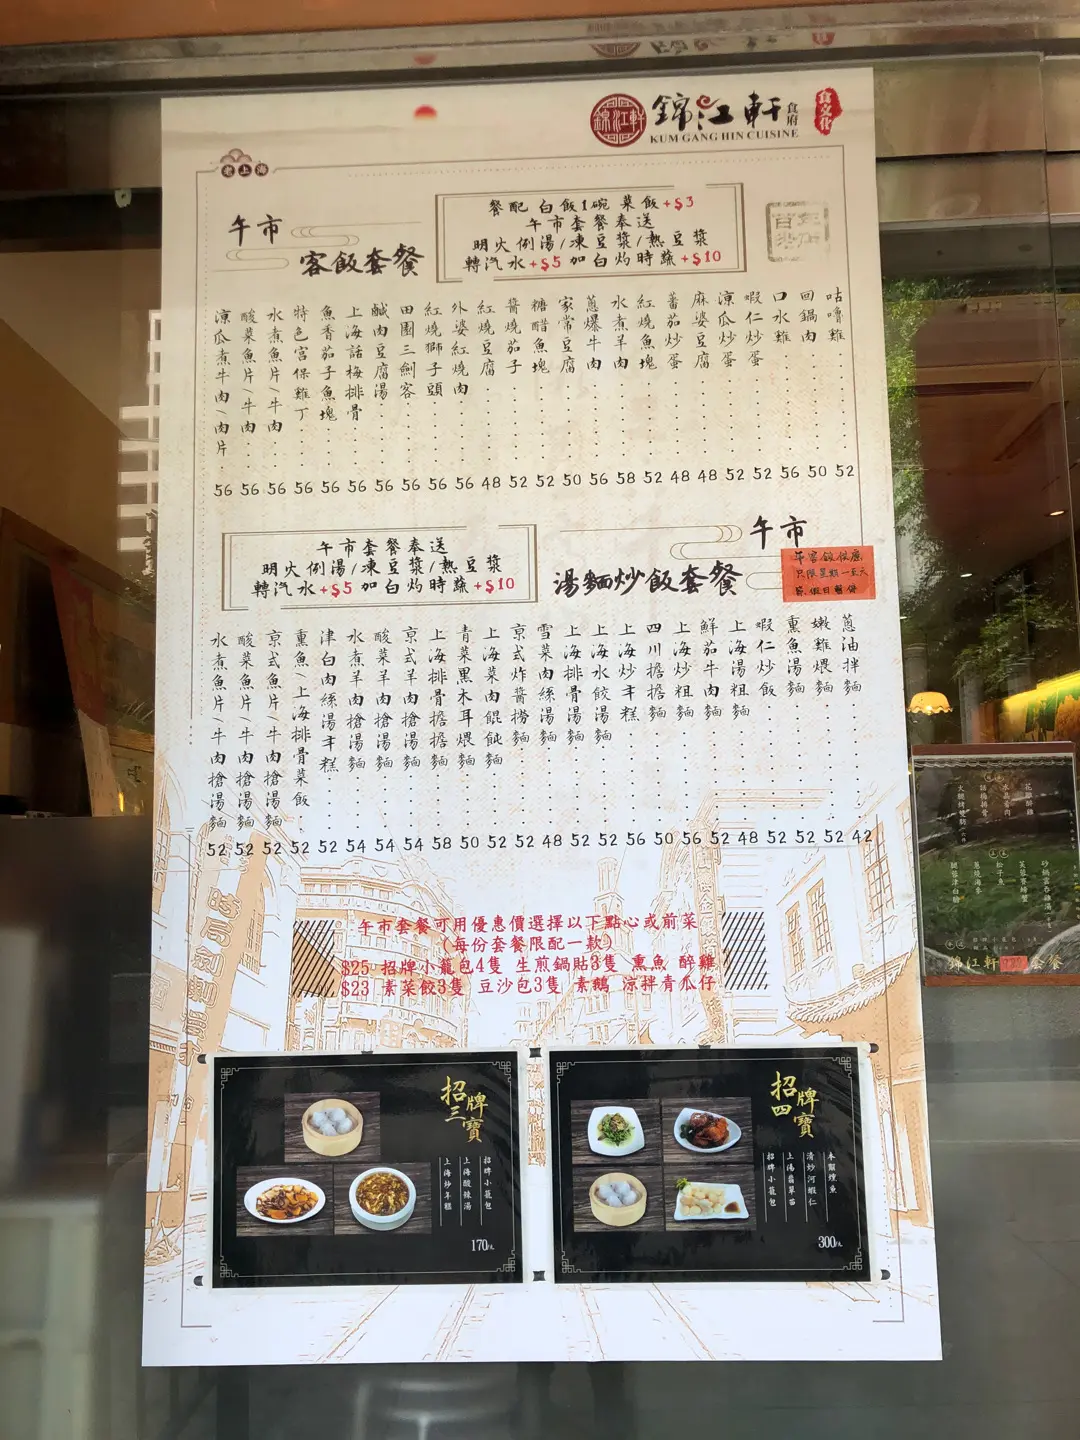 錦江軒
錦江軒
食府
食文化
KUM GANG HIN CUISINE
老上海
午市
客飯套餐
餐配 白飯1碗 菜飯+$3
午市套餐奉送
明火例湯/凍豆漿/熱豆漿
轉汽水+$5 加白灼時蔬+$10
咕嚕雞 52
回鍋肉 50
口水雞 56
蝦仁炒蛋 52
涼瓜炒蛋 52
麻婆豆腐 48
蕃茄炒蛋 48
紅燒魚塊 52
水煮羊肉 58
蔥爆牛肉 56
家常豆腐 50
糖醋魚塊 52
醬燒茄子 52
紅燒豆腐 48
外婆紅燒肉 56
紅燒獅子頭 56
田園三劍客 56
鹹肉豆腐湯 56
上海話梅排骨 56
魚香茄子魚塊 56
特色宮保雞丁 56
水煮魚片/牛肉 56
酸菜魚片/牛肉 56
涼瓜煮牛肉/肉片 56
午市套餐奉送
明火例湯/凍豆漿/熱豆漿
轉汽水+$5 加白灼時蔬+$10
午市
湯麵炒飯套餐
只限星期一至六
蔥油拌麵 42
嫩雞煨麵 52
熏魚湯麵 52
蝦仁炒飯 52
上海湯粗麵 48
鮮茄牛肉麵 52
上海炒粗麵 56
四川擔擔麵 50
上海炒年糕 56
上海水餃湯麵 52
上海排骨湯麵 52
雪菜肉絲湯麵 48
京式炸醬撈麵 52
上海菜肉餛飩麵 52
青菜黑木耳煨麵 50
上海排骨擔擔麵 58
京式羊肉搶湯麵 54
酸菜羊肉搶湯麵 54
水煮羊肉搶湯麵 54
津白肉絲湯年糕 52
熏魚/上海排骨菜飯 52
京式魚片/牛肉搶湯麵 52
酸菜魚片/牛肉搶湯麵 52
水煮魚片/牛肉搶湯麵 52
午市套餐可用優惠價選擇以下點心或前菜
(每份套餐限配一款)
$25 招牌小籠包4隻 生煎鍋貼3隻 熏魚 醉雞
$23 素菜餃3隻 豆沙包3隻 素鵝 涼拌青瓜仔
招牌三寶
招牌小籠包
上海酸辣湯
上海炒年糕
170/
招牌四寶
清炒河蝦仁
招牌小籠包
300/
花雕醉雞
水晶肴肉
話梅排骨
松子魚
錦江軒
套餐